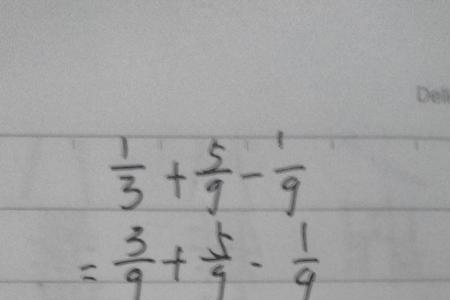 Deli
1/3 + 5/9 - 1/9
= 3/9 + 5/9 - 1/9